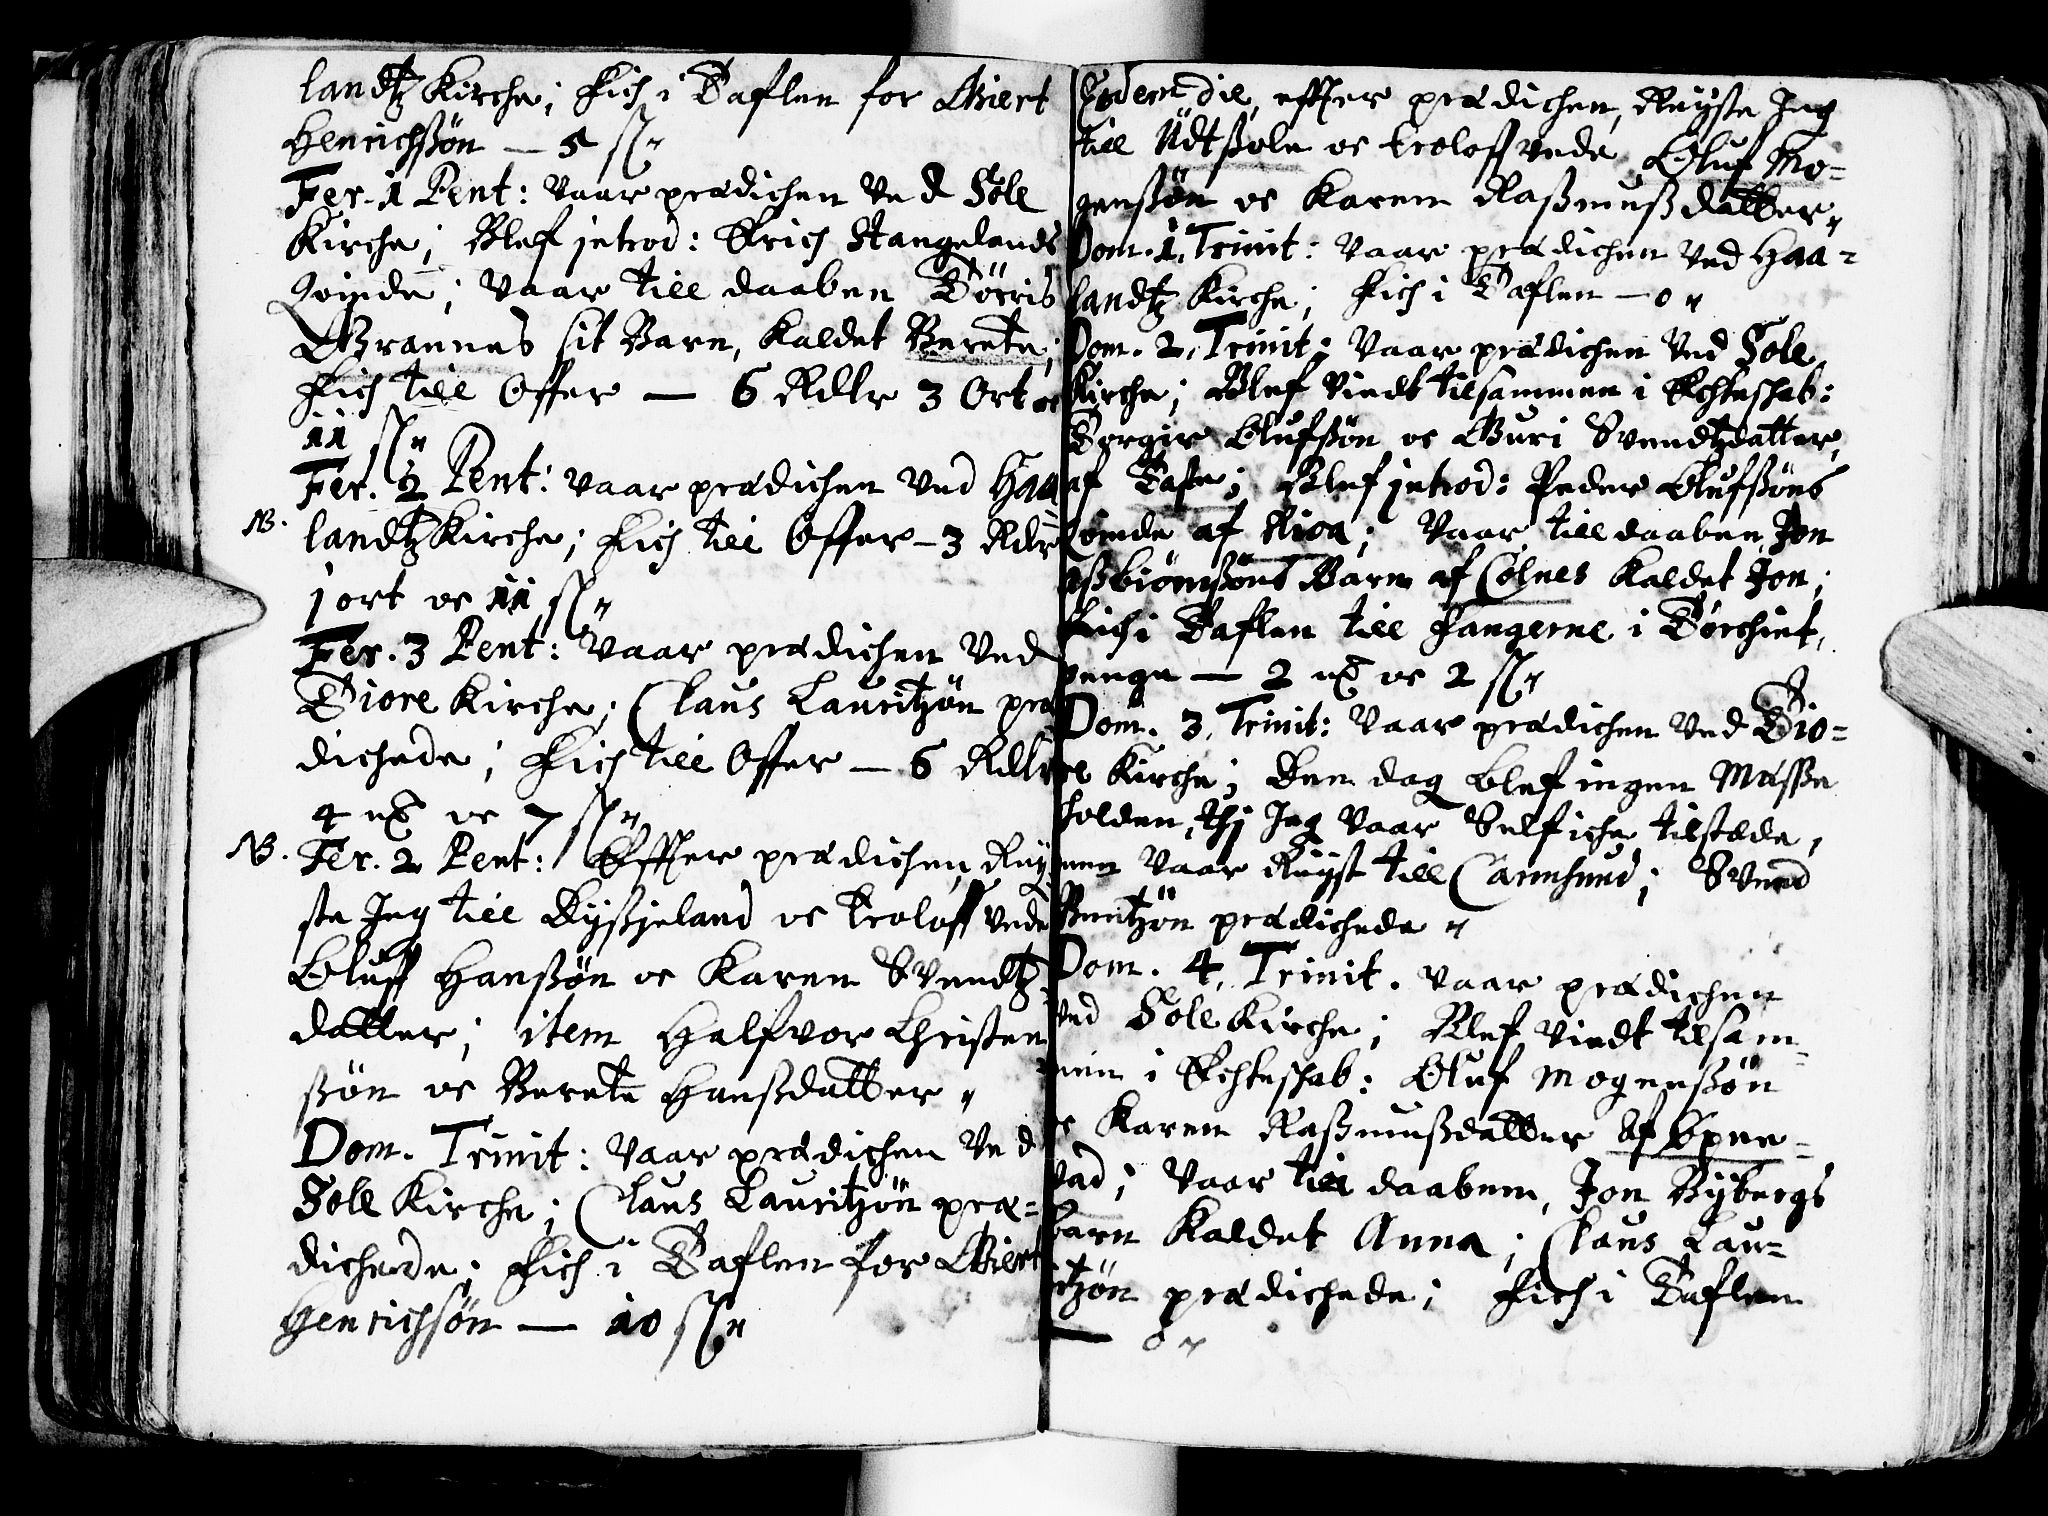 landtz Kirche; Fich i Taflen for Giert
Henrichßøn — 5 sſ"
Fer. 1 Pent: Vaar prædichen Ved Sole
Kirche; Blef introd: Erich Stangelands
Qvinde; Vaar till daaben Tørris
Grannes sit Barn, Kaldet Berete;
Fich till Offer — 6 Rdlr 3 Ort oc
11 sſ"
Fer. 2 Pent: Vaar prædichen Ved Haa
NB. landtz Kirche; Fich till Offer - 3 Rdlr
1 ort oc 11 sſ"
Fer. 3 Pent: Vaar prædichen Ved
Tiore Kirche; Claus Lauritzøn præ
dichede; Fich till Offer — 6 Rdlr
4 mḻ oc 7 sſ"
NB. Fer. 2 Pent: Effter prædichen, Rey
ste Jeg till Dysßjeland oc troloffvede
Oluff Hanßøn oc Karen Svendtz
datter; item Halfvor Christen
ßøn oc Berete Hanßdatter "
Dom. Trinit: Vaar prædichen Ved
Sole Kirche; Claus Lauritzøn præ=
dichede; Fich i Taflen for Giert
Henrichsøn — 10 sſ"
Eodem die, effter prædichen, Reyste Jeg
till Udtßole oc troloffvede Oluf Mo=
genßøn oc Karen Raßmußdatter "
Dom. 1. Trinit: Vaar prædichen Ved Haa=
landtz Kirche; Fich i Taflen — 0 "
Dom. 2. Trinit: Vaar prædichen Ved Sole
Kirche; Blef Viedt tilsammen i Echteschab:
Torgir Olufßøn oc Guri Svendtzdatter,
af Tasta; Blef introd: Peder Olufßøns
Qvinde af Risa; Vaar till daaben, Jon
Eßbiørnßøns Barn af Cølnes Kaldet Jon;
Fich i Taflen till Fangerne i Tørchiet,
penge — 2 mḻ oc 2 sſ"
Dom. 3. Trinit: Vaar prædichen Ved Tio=
re Kirche; Den dag blef ingen Mæsße
holden, thj Jeg Vaar Self iche tilstæde,
men Vaar Reyst till Carmsund; Svend
Bentzøn prædichede "
Dom. 4. Trinit. Vaar prædichen
Ved Sole Kirche; Blef Viedt tilsam=
men i Echteschab: Oluf Mogenßøn
oc Karen Raßmußdatter af Opne=
vad; Vaar till daaben, Jon Bybergs
barn Kaldet Anna; Claus Lau=
ritzøn prædichede; Fich i Taflen
— 0 "